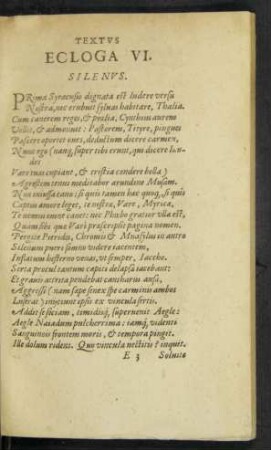 TEXTVS
ECLOGA VI.
SILENVS.
PRima Syracusio dignata est ludere versu
Nostra, nec erubuit syluas habitare, Thalia.
Cum canerem reges, & prælia, Cynthius aurem
Vellit, & admonuit: Pastorem, Tityre, pingues
Pascere oportet oues, deductum dicere carmen,
Nunc ego (nanq, super tibi erunt, qui dicere lau-
des
Vare tuas cupiant, & tristia condere bella)
Agrestem tenui meditabor arundine Musam.
Non iniussa cano: si quis tamen hæc quoq, si quis
Captus amore leget, te nostræ, Vare, Myricæ,
Te nemus omne canet: nec Phœbo gratior vlla est,
Quam sibi quæ Vari præscripsit pagina nomen.
Pergite Pierides, Chromis & Mnasylus in antro
Silenum pueri somno videre iacentem,
Inflatum hesterno venas, vt semper, Iaccho.
Serta procul tantum capiti delapsa iacebant:
Et grauis attrita pendebat cantharus ansa,
Aggressi (nam sæpe senex spe carminis ambos
Luserat) iniiciunt ipsis ex vincula sertis.
Addit se sociam, timidisq, superuenit Aegle:
Aegle Naiadum pulcherrima: iamq, videnti
Sanguineis frontem moris, & tempora pingit.
Ille dolum ridens. Quo vincula nectitis? inquit.
E 3 Soluite